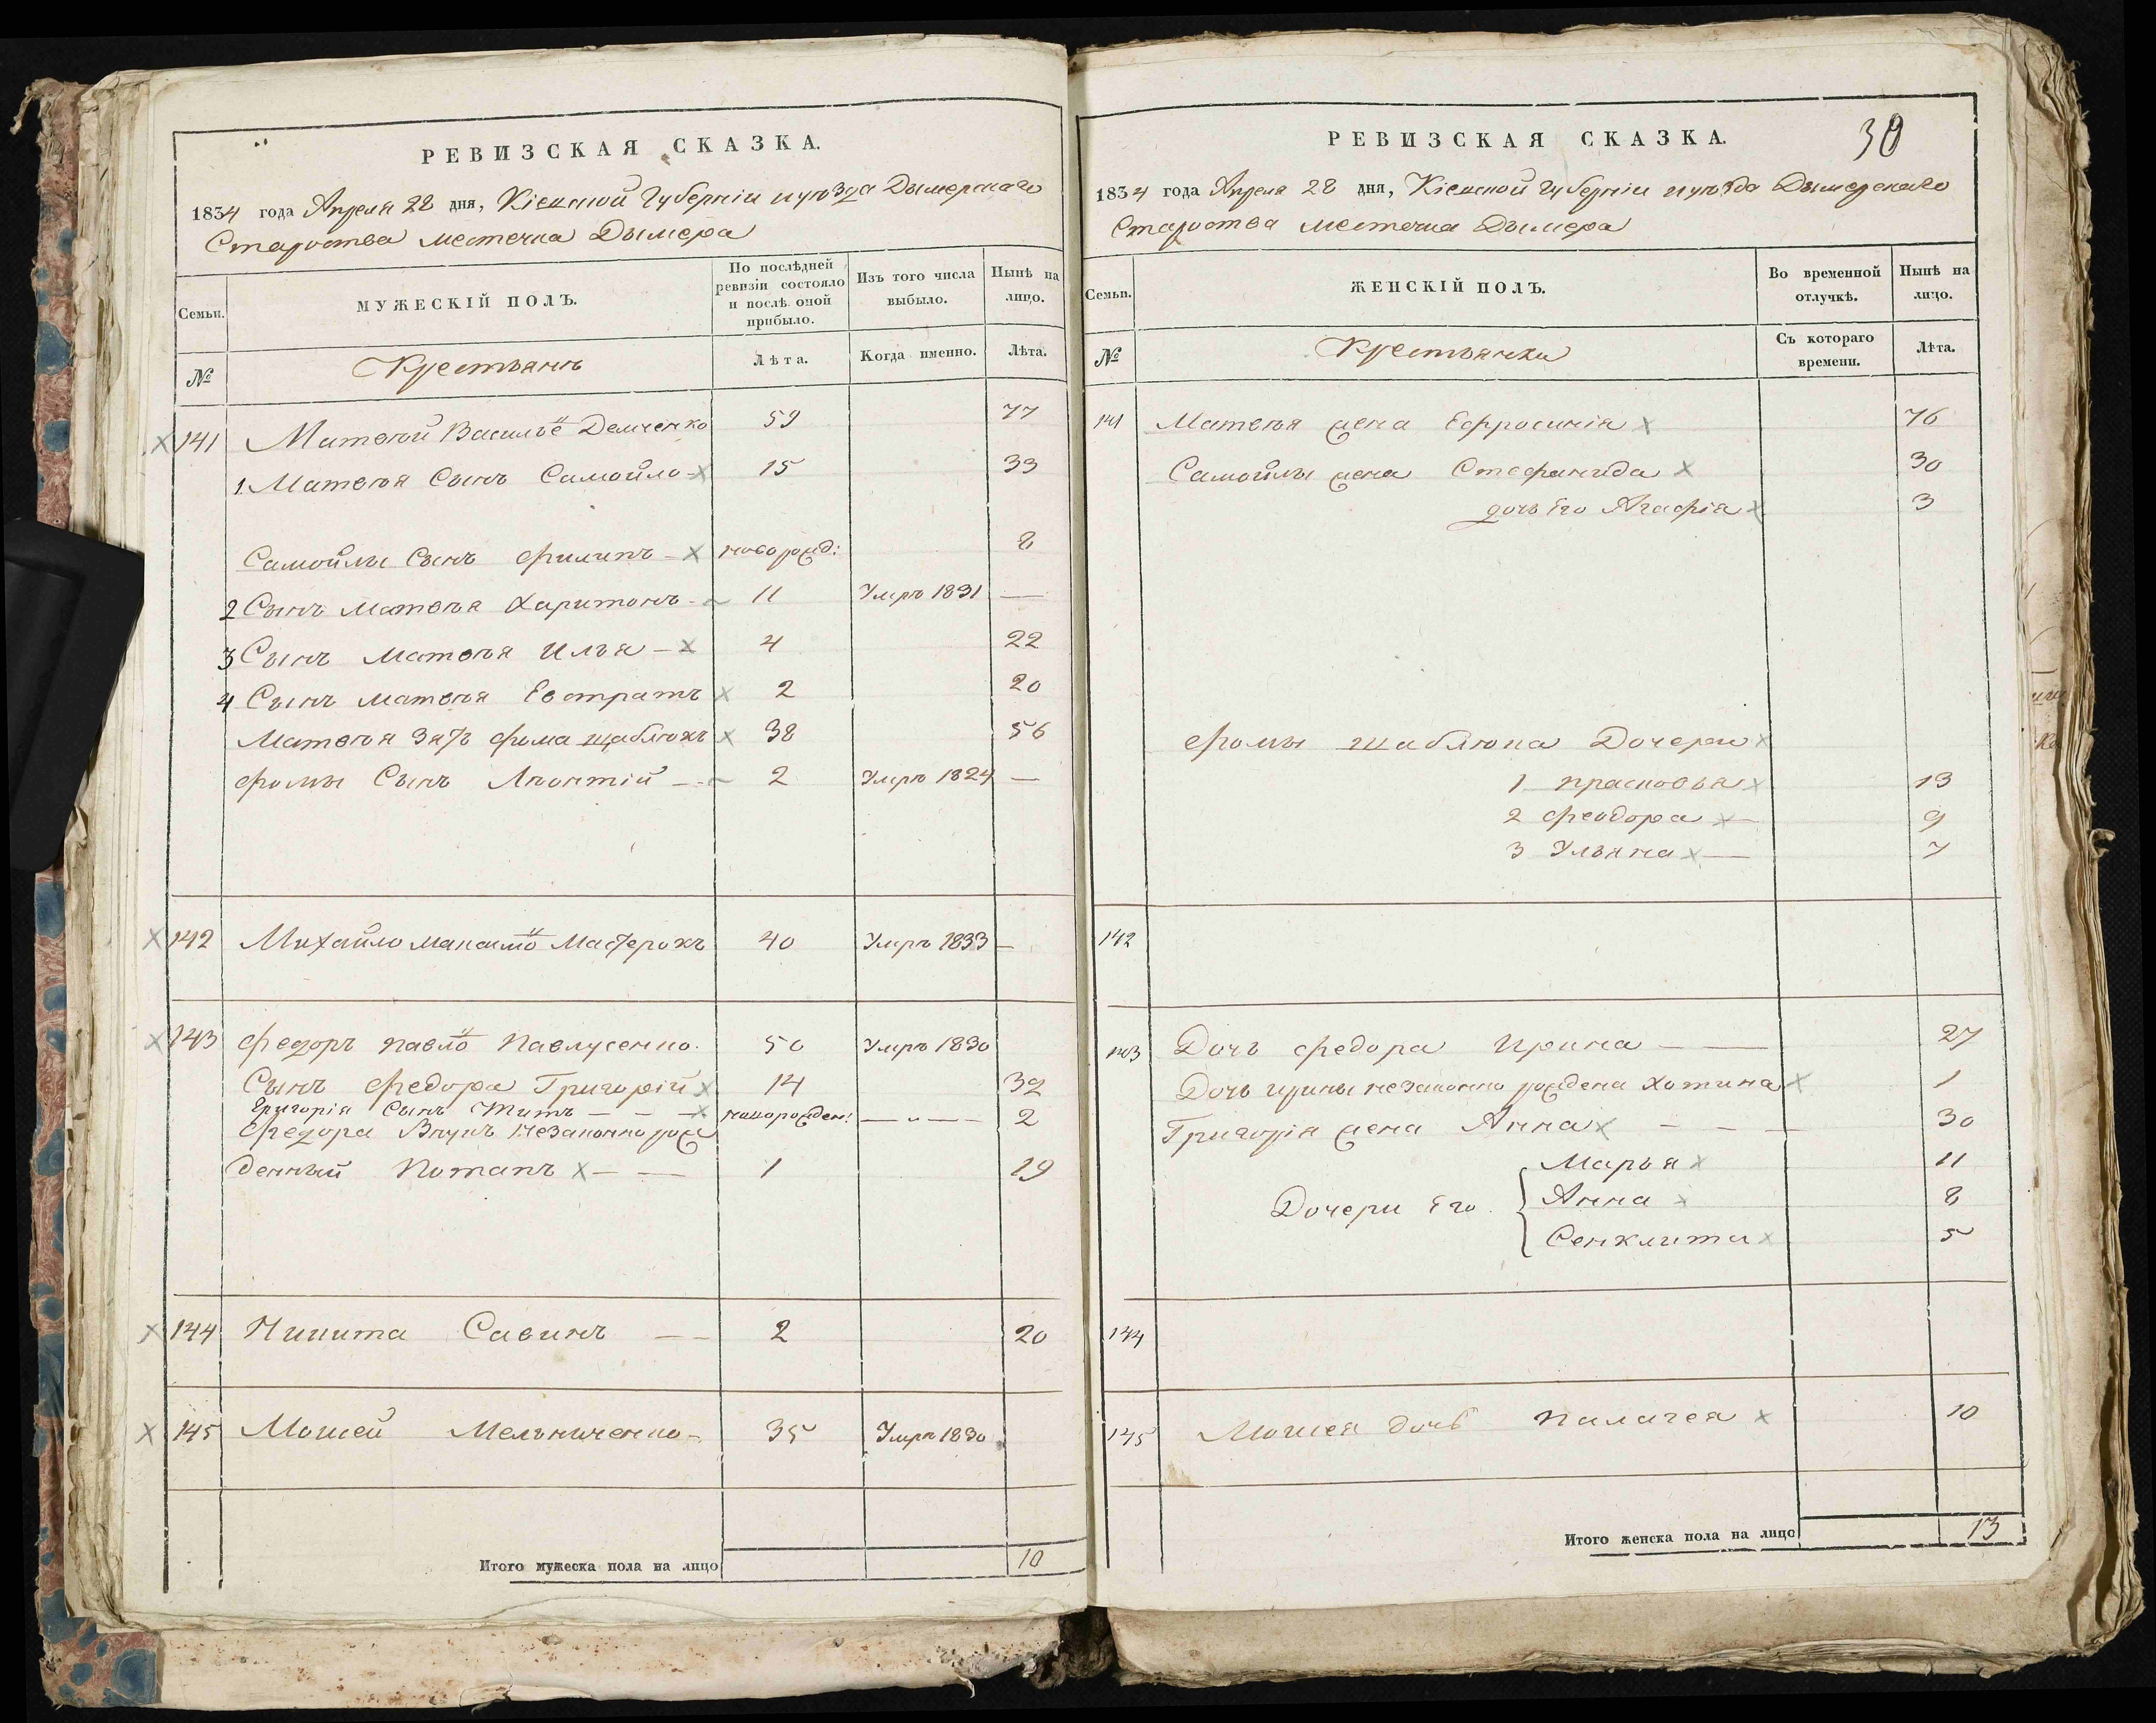 РЕВИЗСКАЯ СКАЗКА.
1834 года Апреля 28 дня, Кіевской Губерніи и уѣзда Дымерскаго
Староства местечка Дымера
Семьи.
МУЖЕСКІЙ ПОЛЪ.
По послѣдней ревизіи состояло и послѣ оной прибыло.
Изъ того числа выбыло.
Нынѣ на лицо.
№
Крестьянъ
Лѣта.
Когда именно.
Лѣта.
141 Матвѣй Васильё Демченко 59 77
1. Матвѣя Сынъ Самойло 15 33
Самойлы Сынъ Филипъ новорожд: 8
2 Сынъ Матвѣя Харитонъ 11 Умръ 1831 —
3 Сынъ Матвѣя Илья 4 22
4 Сынъ Матвѣя Евстратъ 2 20
Матвѣя Зять Фома Шаблюкъ 38 56
Фомы Сынъ Лѣонтій 2 Умръ 1824 —
142 Михайло Максимо Мастерокъ 40 Умръ 1833 —
143 Федоръ Павло Павлусенко. 50 Умръ 1830
Сынъ Федора Григорій 14 32
Григорія Сынъ Титъ новорожден: — „ — 2
Федора Внукъ Незаконно рож
денный Потапъ 1 19
144 Никита Савинъ — — 2 20
145 Мойсей Мельниченко 35 Умръ 1830
Итого мужеска пола на лицо 10
РЕВИЗСКАЯ СКАЗКА.
30
1834 года Апреля 28 дня, Кіевской Губерніи и уѣзда Дымерскаго
Староства местечка Дымера
Семьи.
ЖЕНСКІЙ ПОЛЪ.
Во временной отлучкѣ.
Нынѣ на лицо.
№
Крестьянки
Съ котораго времени.
Лѣта.
141 Матвѣя жена Ефросинія 76
Самойлы жена Стефанида 30
дочь Его Агафія 3
Фомы Шаблюка Дочери
1 Прасковья 13
2 Феодора 9
3 Ульяна 7
142
143 Дочь Федора Ирина — — 27
Дочь ирины незаконно рождена Хотина 1
Григорія жена Анна — — — 30
Марья 11
Дочери Его { Анна 8
Сенклити 5
144
145 Мойсея дочь Палагея 10
Итого женска пола на лицо 13